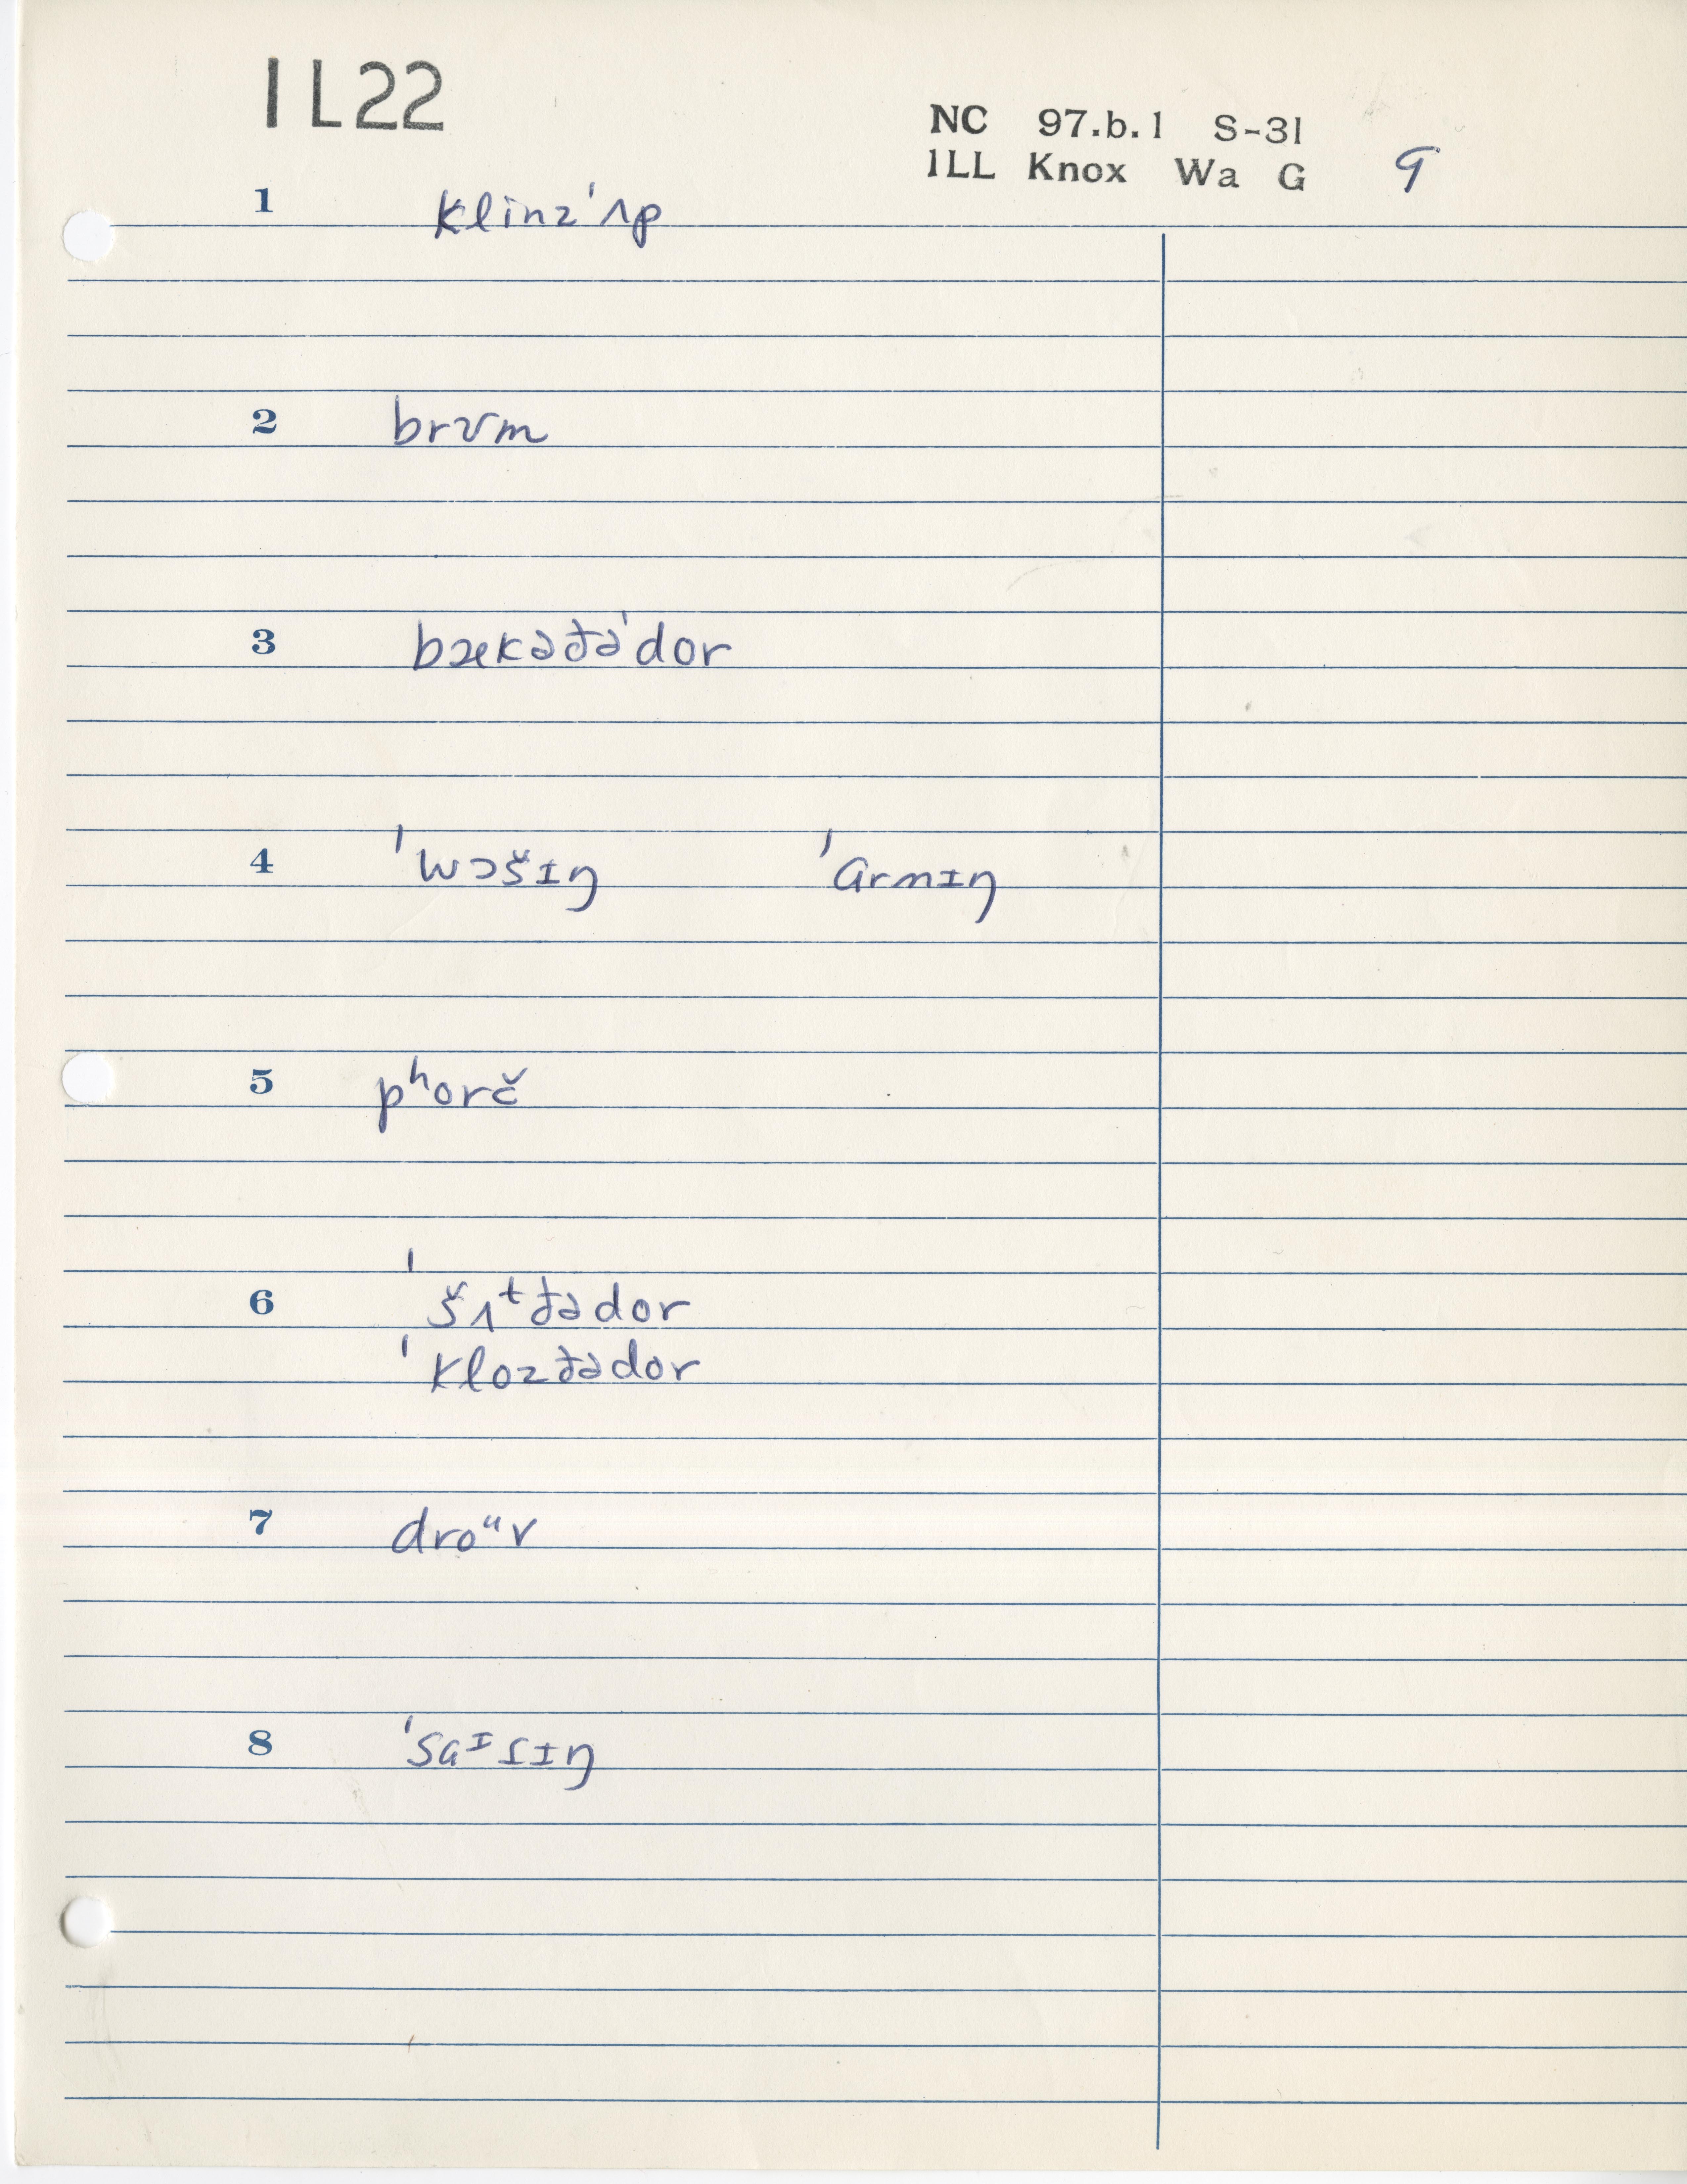 1L22
NC 97.b.1 S-31
1LL Knox Wa G 9
1 klinzˈʌp
2 brʊm
3 bækəđəˈdor
4 ˈwɔšɪŋ ˈɑrnɪŋ
5 pʰorč
6 ˈšʌᵗđədor
ˈklozđədor
7 droᵘv
8 ˈsɑᶦsɪŋ